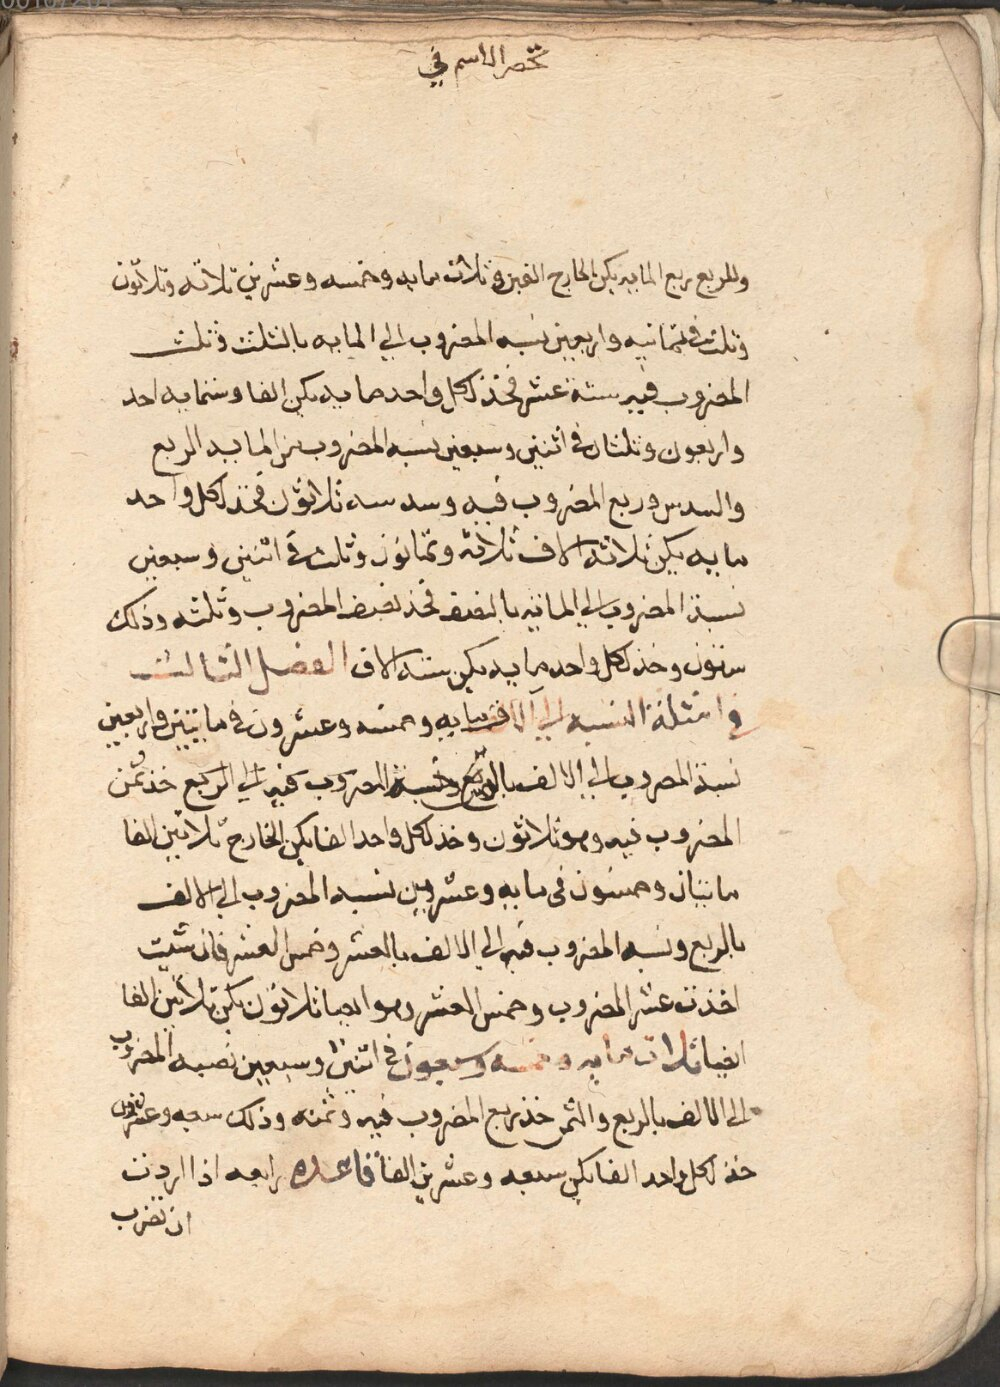 تحصر الاسم في
وللربع ربع المايه يكن الخارج الفين وثلاث مايه وخمسه وعشرين ثلاثه وثلاثون
وثلث في ثمانيه واربعين نسبه المضروب الي المايه بالثلث وثلث
المضروب فيه ستة عشر فخذ لكل واحد مايه يكن الفا وستمايه احد
واربعون وثلثان في اثنين وسبعين نسبه المضروب من المايه الربع
والسدس وربع المضروب فيه وسدسه ثلاثون فخذ لكل واحد
مايه يكن ثلاثه الاف ثلاثة وثمانون وثلث في اثنين وسبعين
نسبة المضروب الي المايه بالنصف فخذ نصف المضروب وثلثه وذلك
ستون وخذ لكل واحد مايه يكن سته الاف الفصل الثالث
في امثلة النسبه الي الالف مايه وخمسه وعشرون في مايتين واربعين
نسبة المضروب الي الالف بالثمن ونسبة المضروب فيه الي الربع خذ ثمن
المضروب فيه وهو ثلاثون وخذ لكل واحد الفا يكن الخارج ثلاثين الفا
مايتان وخمسون في مايه وعشرين نسبه المضروب الي الالف
بالربع ونسبه المضروب فيه الي الالف بالعشر وخمس العشر فان شيت
اخذت عشر المضروب وخمس العشر وهو ايضا ثلاثون يكن ثلاثين الفا
ايضا ثلاث مايه وخمسه وسبعون في اثنين وسبعين نصبه المضروب
الي الالف بالربع والثمن خذ ربع المضروب فيه وثمنه وذلك سبعه وعشرون
خذ لكل واحد الفا يكن سبعه وعشرين الفا قاعده رابعه اذا اردت
ان تضرب